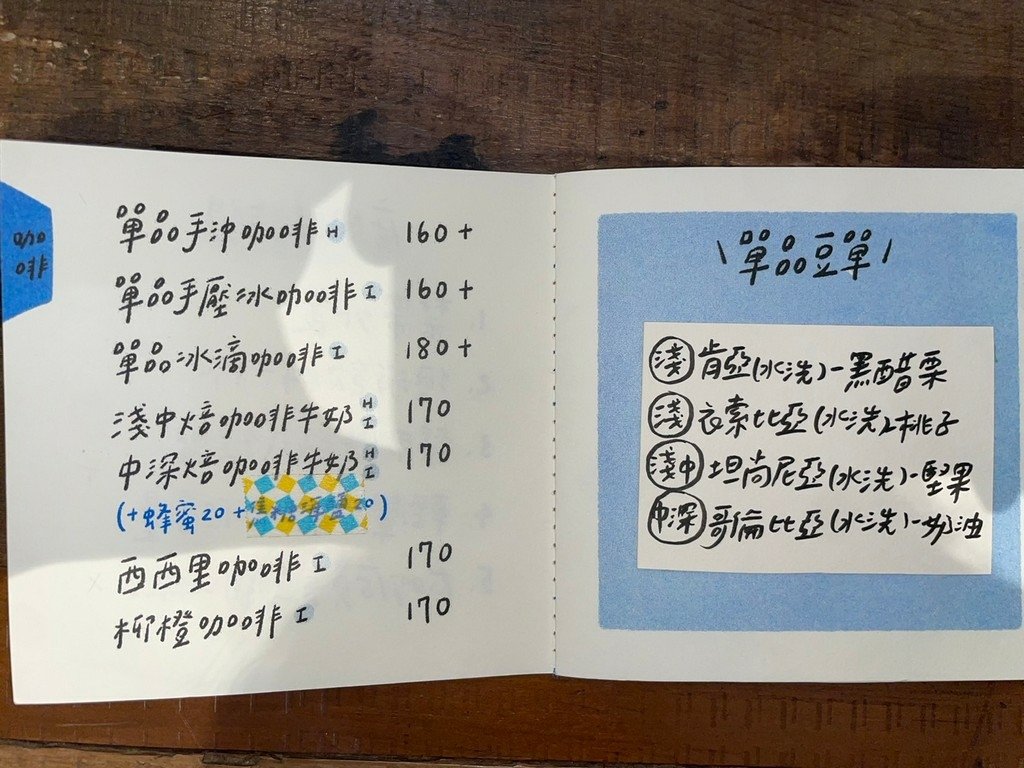 咖
啡
單品手沖咖啡 H 160+
單品手壓冰咖啡 I 160+
單品冰滴咖啡 I 180+
淺中焙咖啡牛奶 H I 170
中深焙咖啡牛奶 H I 170
(+蜂蜜20 + 20)
西西里咖啡 I 170
柳橙咖啡 I 170
\單品豆單/
淺 肯亞(水洗)-黑醋栗
淺 衣索比亞(水洗)-桃子
淺中 坦尚尼亞(水洗)-堅果
中深 哥倫比亞(水洗)-奶油